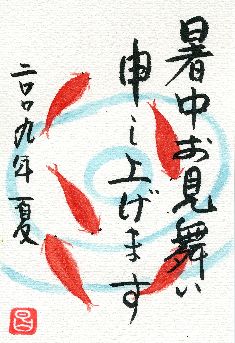 暑中お見舞い
申し上げます
二〇〇九年夏